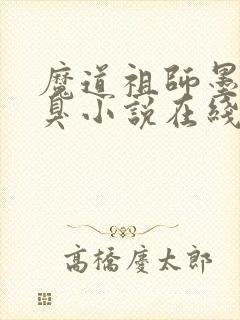 魔道祖師墨
臭小說在綫
高橋慶太郎